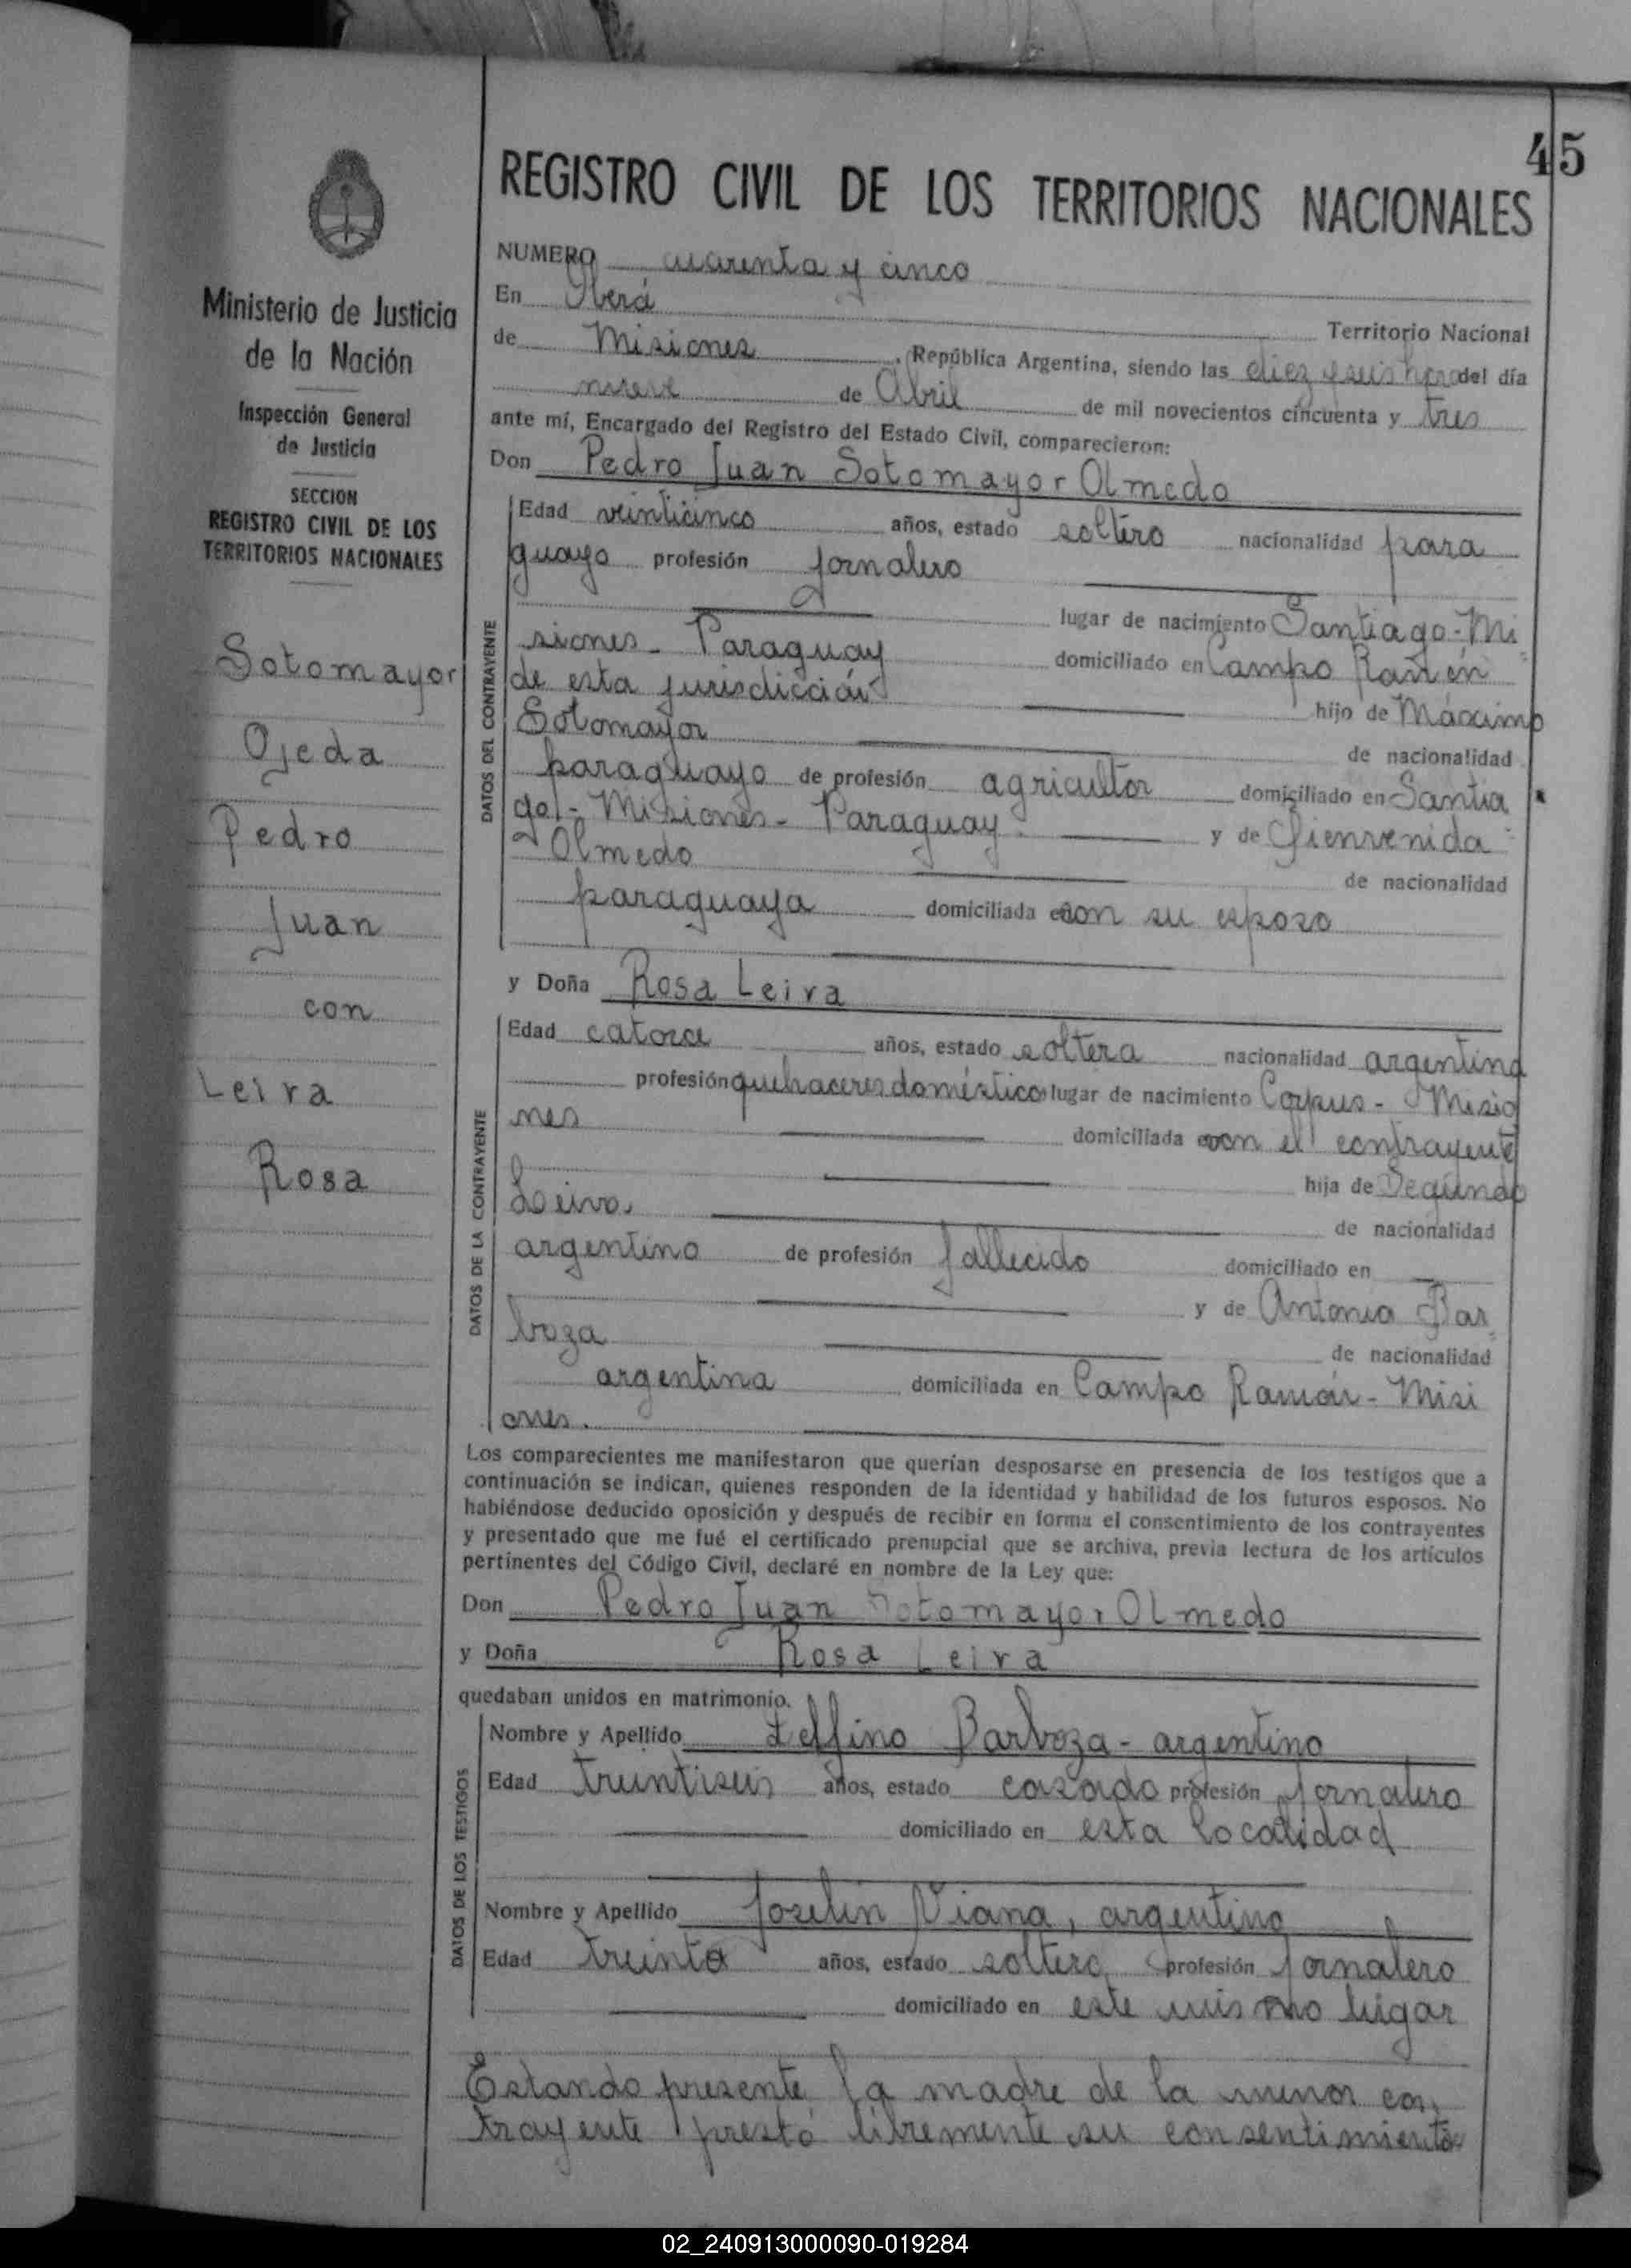 45
REGISTRO CIVIL DE LOS TERRITORIOS NACIONALES
Ministerio de Justicia
de la Nación
Inspección General
de Justicia
SECCION
REGISTRO CIVIL DE LOS
TERRITORIOS NACIONALES
Sotomayor
Ojeda
Pedro
Juan
con
Leiva
Rosa
NUMERO cuarenta y cinco
En Oberá Territorio Nacional
de Misiones, República Argentina, siendo las diez y seis horas del día
nueve de Abril de mil novecientos cincuenta y tres
ante mí, Encargado del Registro del Estado Civil, comparecieron:
Don Pedro Juan Sotomayor Olmedo
DATOS DEL CONTRAYENTE
Edad veinticinco años, estado soltero nacionalidad para
guayo profesión jornalero
lugar de nacimiento Santiago-Mi
siones- Paraguay domiciliado en Campo Ramón
de esta jurisdicción hijo de Máximo
Sotomayor de nacionalidad
paraguayo de profesión agricultor domiciliado en Santia
go!- Misiones- Paraguay. y de Bienvenida
Olmedo de nacionalidad
paraguaya domiciliada con su esposo
y Doña Rosa Leiva
DATOS DE LA CONTRAYENTE
Edad catorce años, estado soltera nacionalidad argentina
profesión quehaceres domésticos lugar de nacimiento Corpus- Misio
nes domiciliada con el contrayente
hija de Segundo
Leiva. de nacionalidad
argentino de profesión fallecido domiciliado en
y de Antonia Bar
boza de nacionalidad
argentina domiciliada en Campo Ramón- Misi
ones.
Los comparecientes me manifestaron que querían desposarse en presencia de los testigos que a
continuación se indican, quienes responden de la identidad y habilidad de los futuros esposos. No
habiéndose deducido oposición y después de recibir en forma el consentimiento de los contrayentes
y presentado que me fué el certificado prenupcial que se archiva, previa lectura de los artículos
pertinentes del Código Civil, declaré en nombre de la Ley que:
Don Pedro Juan Sotomayor Olmedo
y Doña Rosa Leiva
quedaban unidos en matrimonio.
DATOS DE LOS TESTIGOS
Nombre y Apellido Delfino Barboza- argentino
Edad treintiseis años, estado casado profesión jornalero
domiciliado en esta localidad
Nombre y Apellido Joselin Viana, argentino
Edad treinta años, estado soltero profesión jornalero
domiciliado en este mismo lugar
Estando presente la madre de la menor con
trayente prestó libremente su consentimiento
02_240913000090-019284